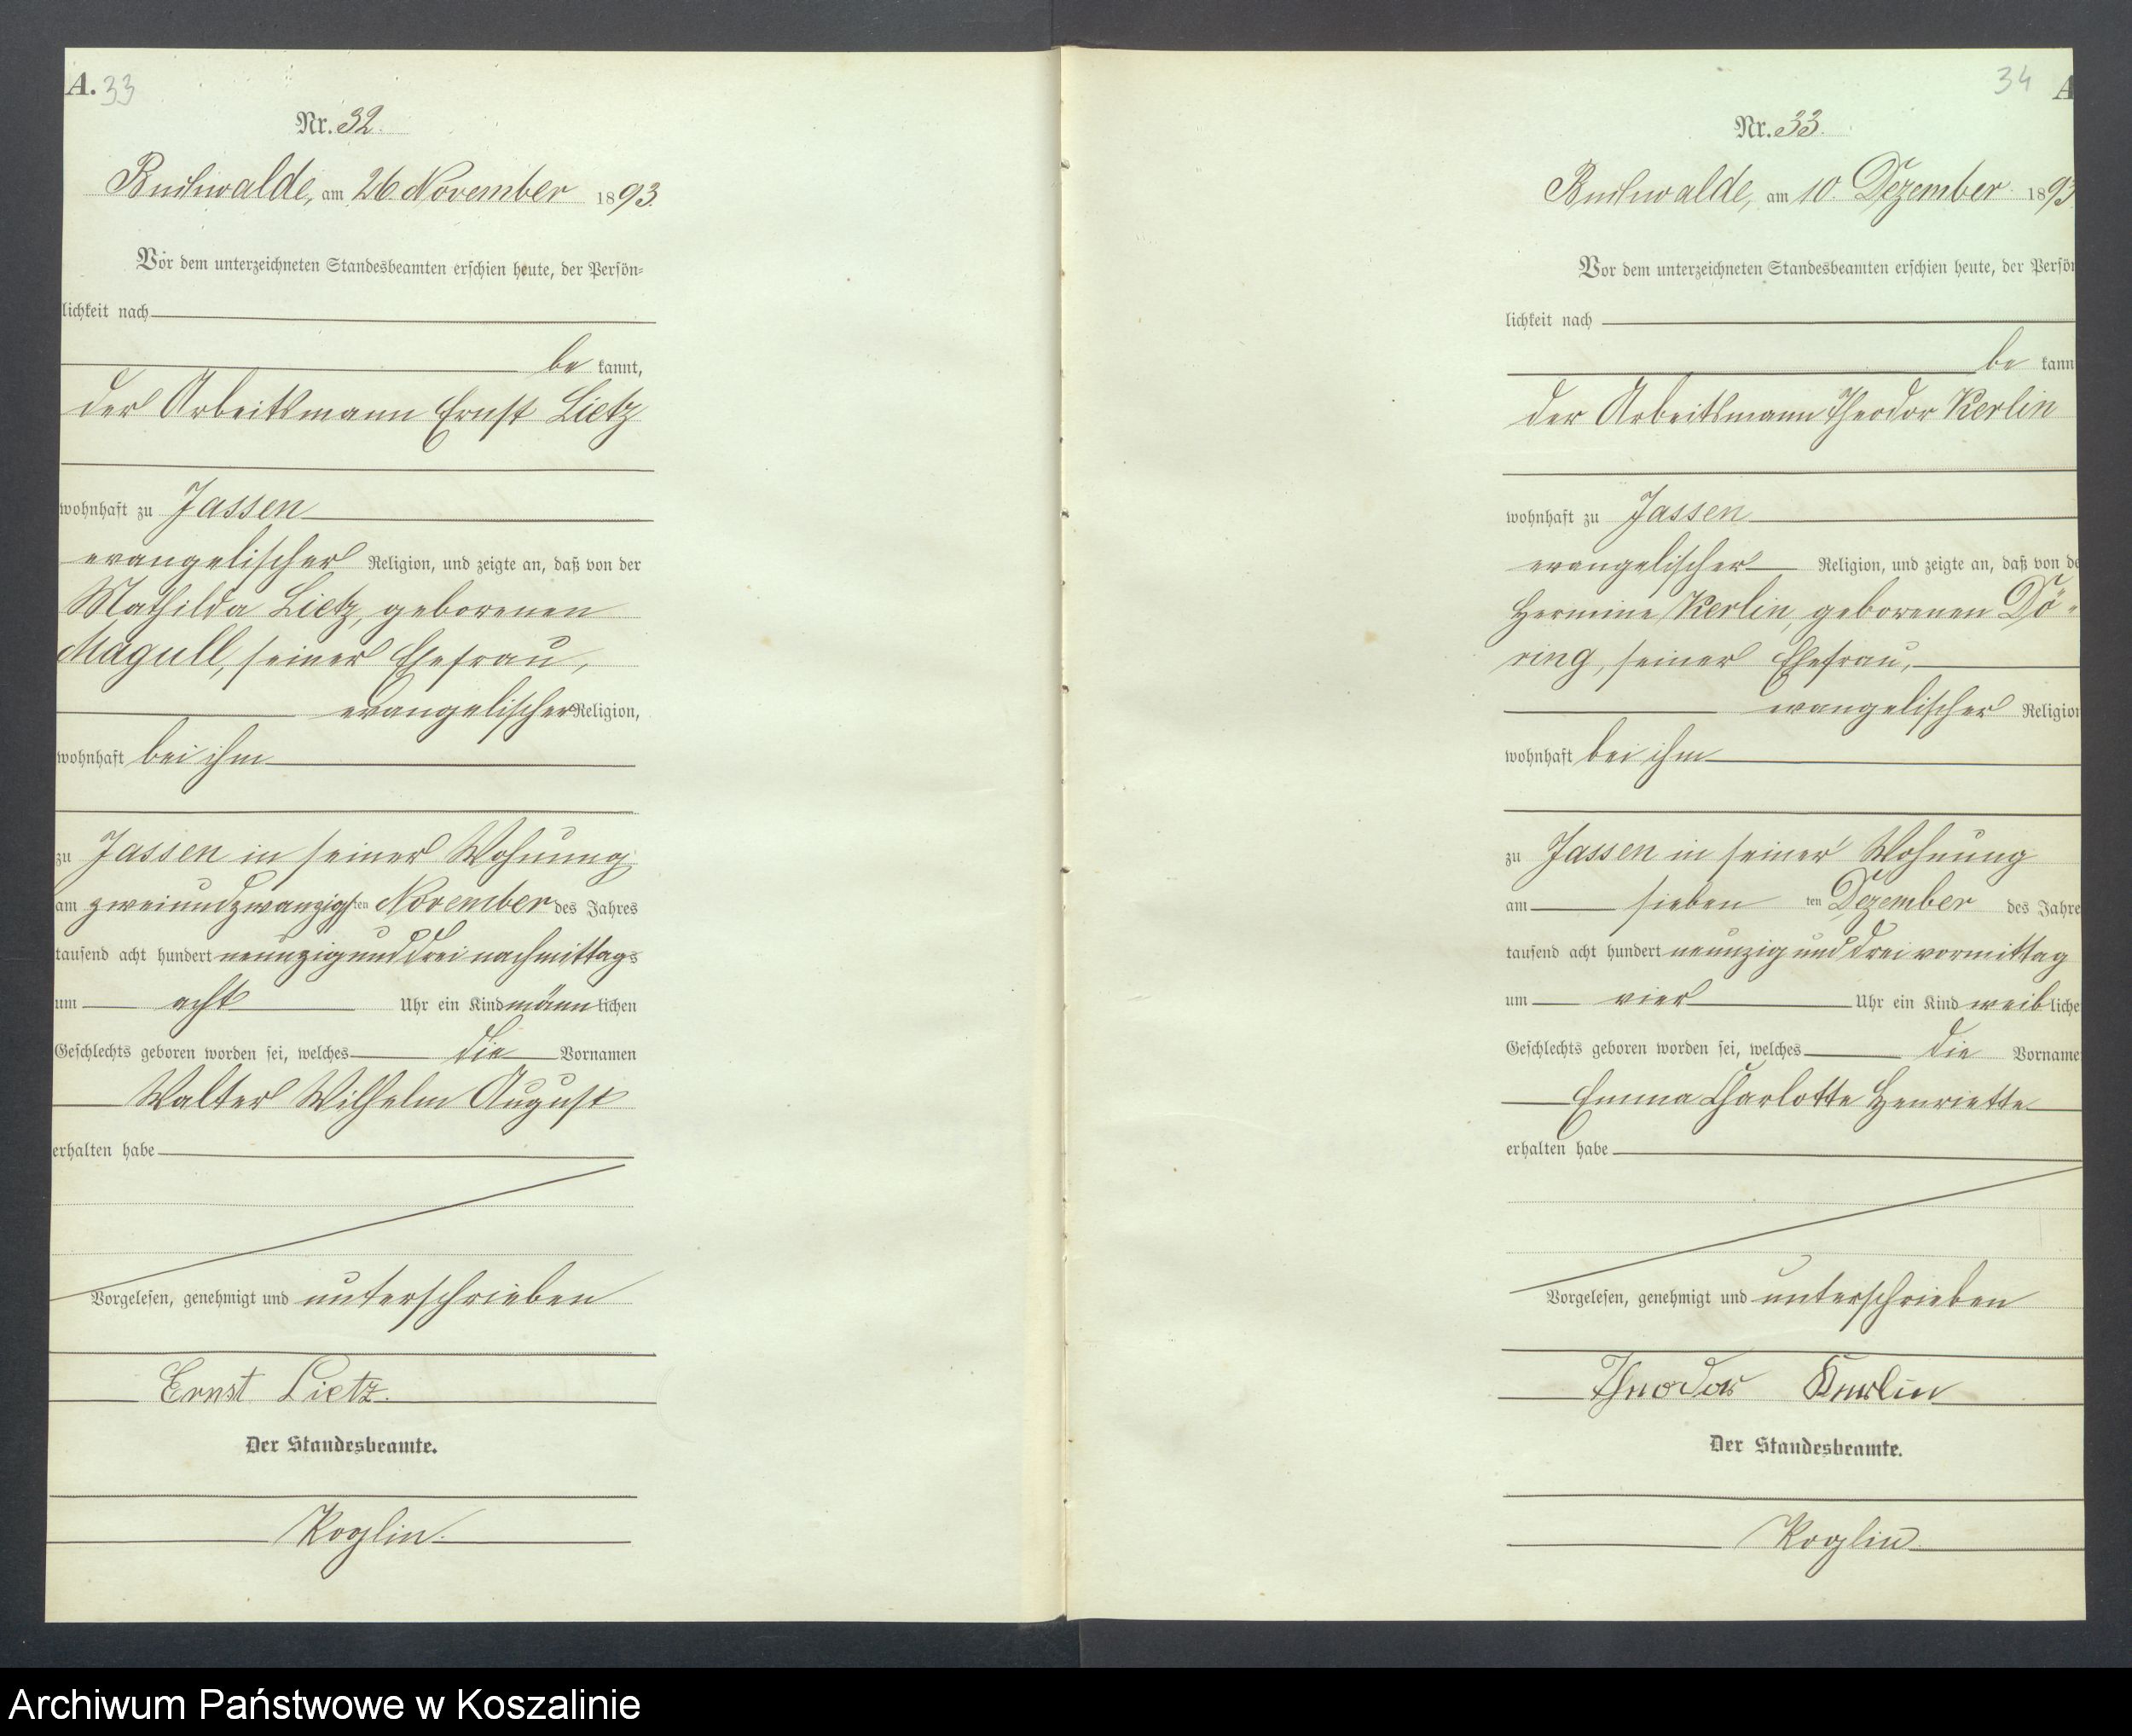 A. 33
Nr. 32.
Buchwalde, am 26. November 1893.
Vor dem unterzeichneten Standesbeamten erschien heute, der Persön-
lichkeit nach
be kannt,
der Arbeitsmann Ernst Lietz
wohnhaft zu Jassen
evangelischer Religion, und zeigte an, daß von der
Mathilda Lietz, geborenen
Magull, seiner Ehefrau,
evangelischer Religion,
wohnhaft bei ihm
zu Jassen in seiner Wohnung
am zweiundzwanzigsten November des Jahres
tausend acht hundert neunzig und drei nachmittags
um acht Uhr ein Kind männlichen
Geschlechts geboren worden sei, welches die Vornamen
Walter Wilhelm August
erhalten habe
Vorgelesen, genehmigt und unterschrieben
Ernst Lietz.
Der Standesbeamte.
Koglin.
34 A
Nr. 33.
Buchwalde, am 10. Dezember 1893
Vor dem unterzeichneten Standesbeamten erschien heute, der Persön
lichkeit nach
be kann
der Arbeitsmann Theodor Kerlin
wohnhaft zu Jassen
evangelischer Religion, und zeigte an, daß von de
Hermine Kerlin, geborenen Dö-
ring, seiner Ehefrau,
evangelischer Religion
wohnhaft bei ihm
zu Jassen in seiner Wohnung
am sieben ten Dezember des Jahre
tausend acht hundert neunzig und drei vormittag
um vier Uhr ein Kind weibliche
Geschlechts geboren worden sei, welches die Vorname
Emma Charlotte Henriette
erhalten habe
Vorgelesen, genehmigt und unterschrieben
Theodor Kerlin
Der Standesbeamte.
Koglin.
Archiwum Państwowe w Koszalinie